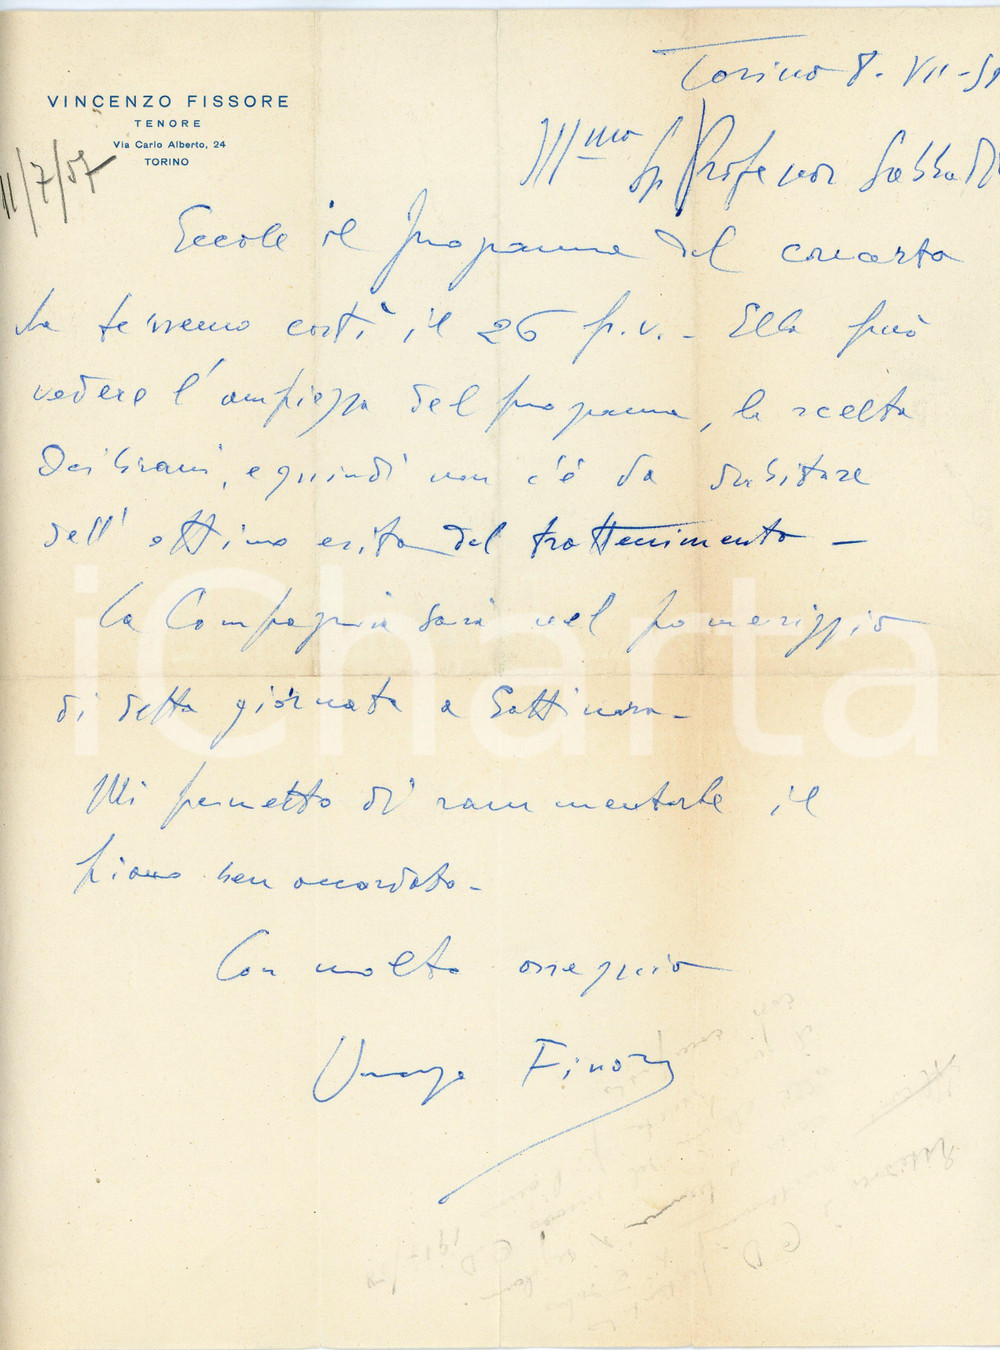 VINCENZO FISSORE
TENORE
Via Carlo Alberto, 24
TORINO
11/7/57
Torino 8. VII-5
Ill.mo Sig Professor
Eccole il programma del concerto
che terremo costì il 26 p.v. - Ella può
vedere l'ampiezza del programma, la scelta
dei brani, e quindi non c'è da dubitare
dell'ottimo esito del trattenimento -
La Compagnia sarà nel pomeriggio
di detta giornata a Gattinara -
Mi permetto di rammentarle il
piano ben accordato -
Con molto ossequio
Vincenzo Fissore
iCharta